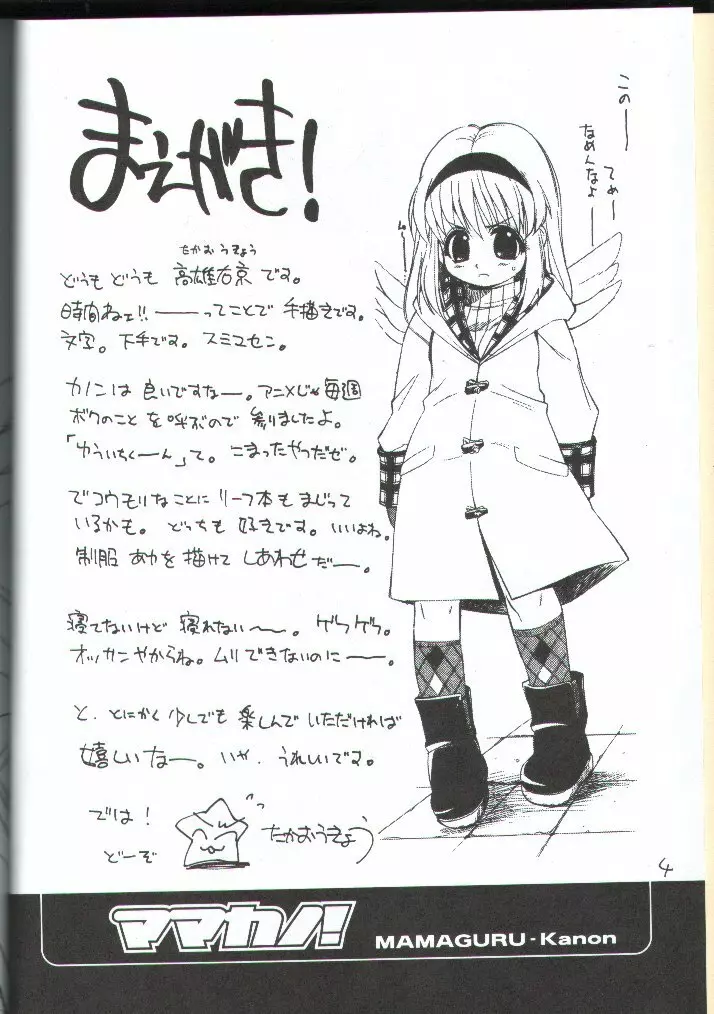 まえがき!
たかお うきょう
どうも どうも 高雄右京 です。
時間ねェ!! ――ってことで 手描きです。
文字。下手です。スミマセン。
カノンは 良いですなー。アニメじゃ 毎週
ボクのこと を 呼ぶので 参りましたよ。
「ゆういちくーん」て。こまったやつだゼ。
でコウモリなことに リーフ本も まじって
いるかも。どっちも 好きです。いいよね。
制服 あゆを 描けて しあわせだー。
寝てないけど 寝れない〜。ゲフゲフ。
オッサンやからね。ムリできないのに――。
と、とにかく 少しでも 楽しんで いただければ
嬉しいなー。いや、うれしいです。
では!
どーぞ
たかおうきょう
この――
てめー
なめんなよ――
4
ママカノ!
MAMAGURU - Kanon